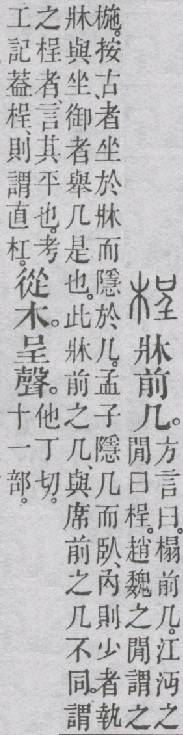 桯 牀前几。
方言曰。榻前几。江沔之
閒曰桯。趙魏之閒謂之
椸。按古者坐於牀而隱於几。孟子隱几而臥。內則少者執
牀與坐、御者舉几是也。此牀前之几、與席前之几不同。謂
之桯者、言其平也。考
工記葢桯、則謂直杠。
從木。呈聲。
他丁切。
十一部。